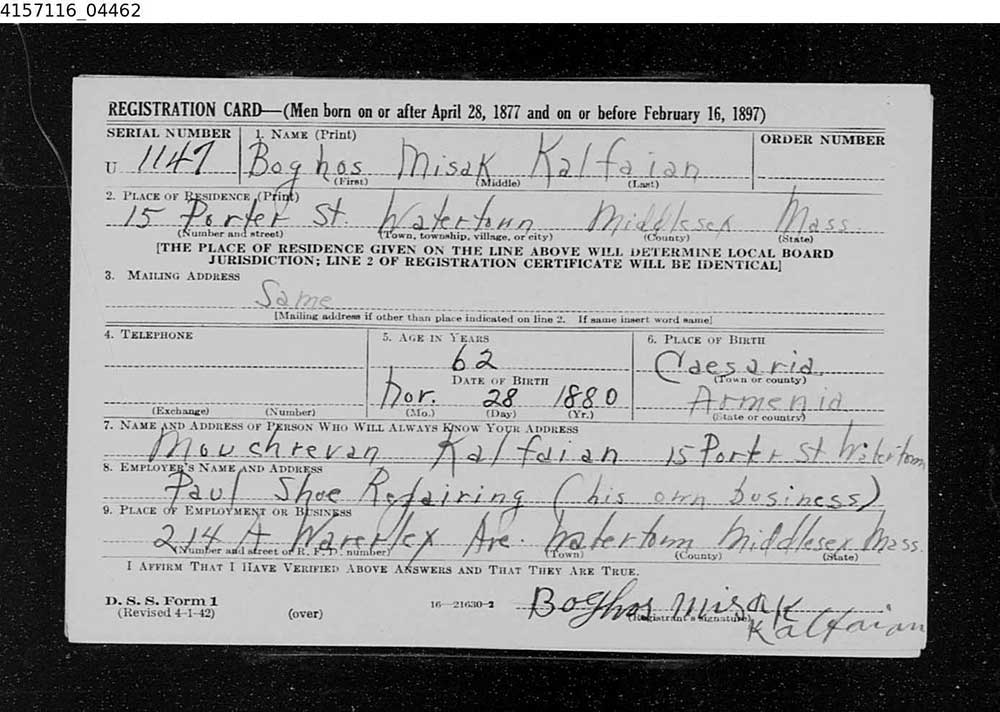 4157116_04462
REGISTRATION CARD—(Men born on or after April 28, 1877 and on or before February 16, 1897)
SERIAL NUMBER
1. NAME (Print)
ORDER NUMBER
U 1147
Boghos Misak Kalfaian
(First) (Middle) (Last)
2. PLACE OF RESIDENCE (Print)
15 Porter St. Watertown Middlesex Mass.
(Number and street) (Town, township, village, or city) (County) (State)
[THE PLACE OF RESIDENCE GIVEN ON THE LINE ABOVE WILL DETERMINE LOCAL BOARD
JURISDICTION; LINE 2 OF REGISTRATION CERTIFICATE WILL BE IDENTICAL]
3. MAILING ADDRESS
Same
[Mailing address if other than place indicated on line 2. If same insert word same]
4. TELEPHONE
(Exchange) (Number)
5. AGE IN YEARS
62
DATE OF BIRTH
Nov. 28 1880
(Mo.) (Day) (Yr.)
6. PLACE OF BIRTH
Caesaria
(Town or county)
Armenia
(State or country)
7. NAME AND ADDRESS OF PERSON WHO WILL ALWAYS KNOW YOUR ADDRESS
Mouchrevan Kalfaian 15 Porter St Watertown
8. EMPLOYER'S NAME AND ADDRESS
Paul Shoe Repairing (his own business)
9. PLACE OF EMPLOYMENT OR BUSINESS
214 A Waverley Ave. Watertown Middlesex Mass.
(Number and street or R. F. D. number) (Town) (County) (State)
I AFFIRM THAT I HAVE VERIFIED ABOVE ANSWERS AND THAT THEY ARE TRUE.
D. S. S. Form 1
(Revised 4-1-42)
(over)
16—21630-2
Boghos Misak
Kalfaian
(Registrant's signature)